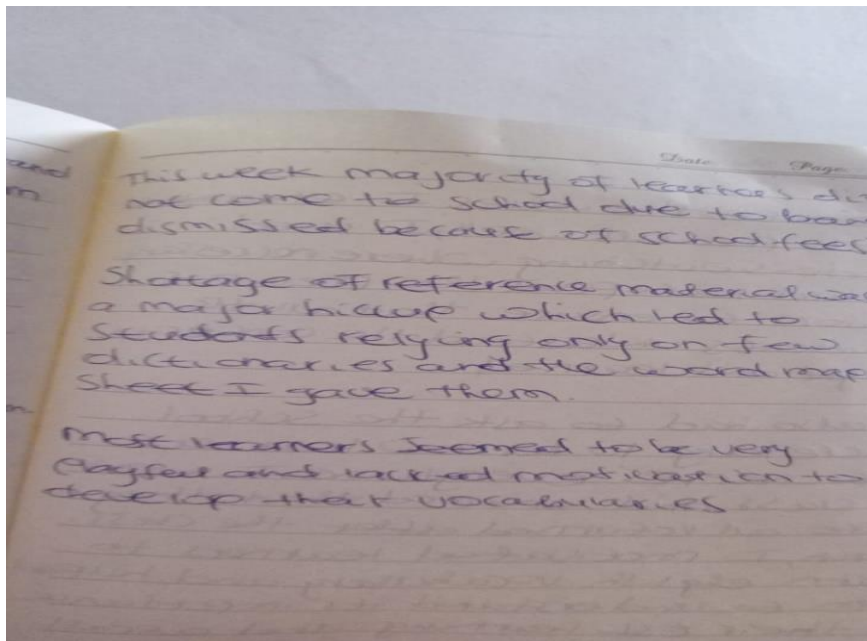 and
Date Page
This week majority of learners di
not come to school due to
dismissed because of school fees
Shortage of reference material wa
a major hiccup which led to
students relying only on few
dictionaries and the word map
sheet I gave them.
most learners seemed to be very
playful and lacked motivation to
develop their vocabularies